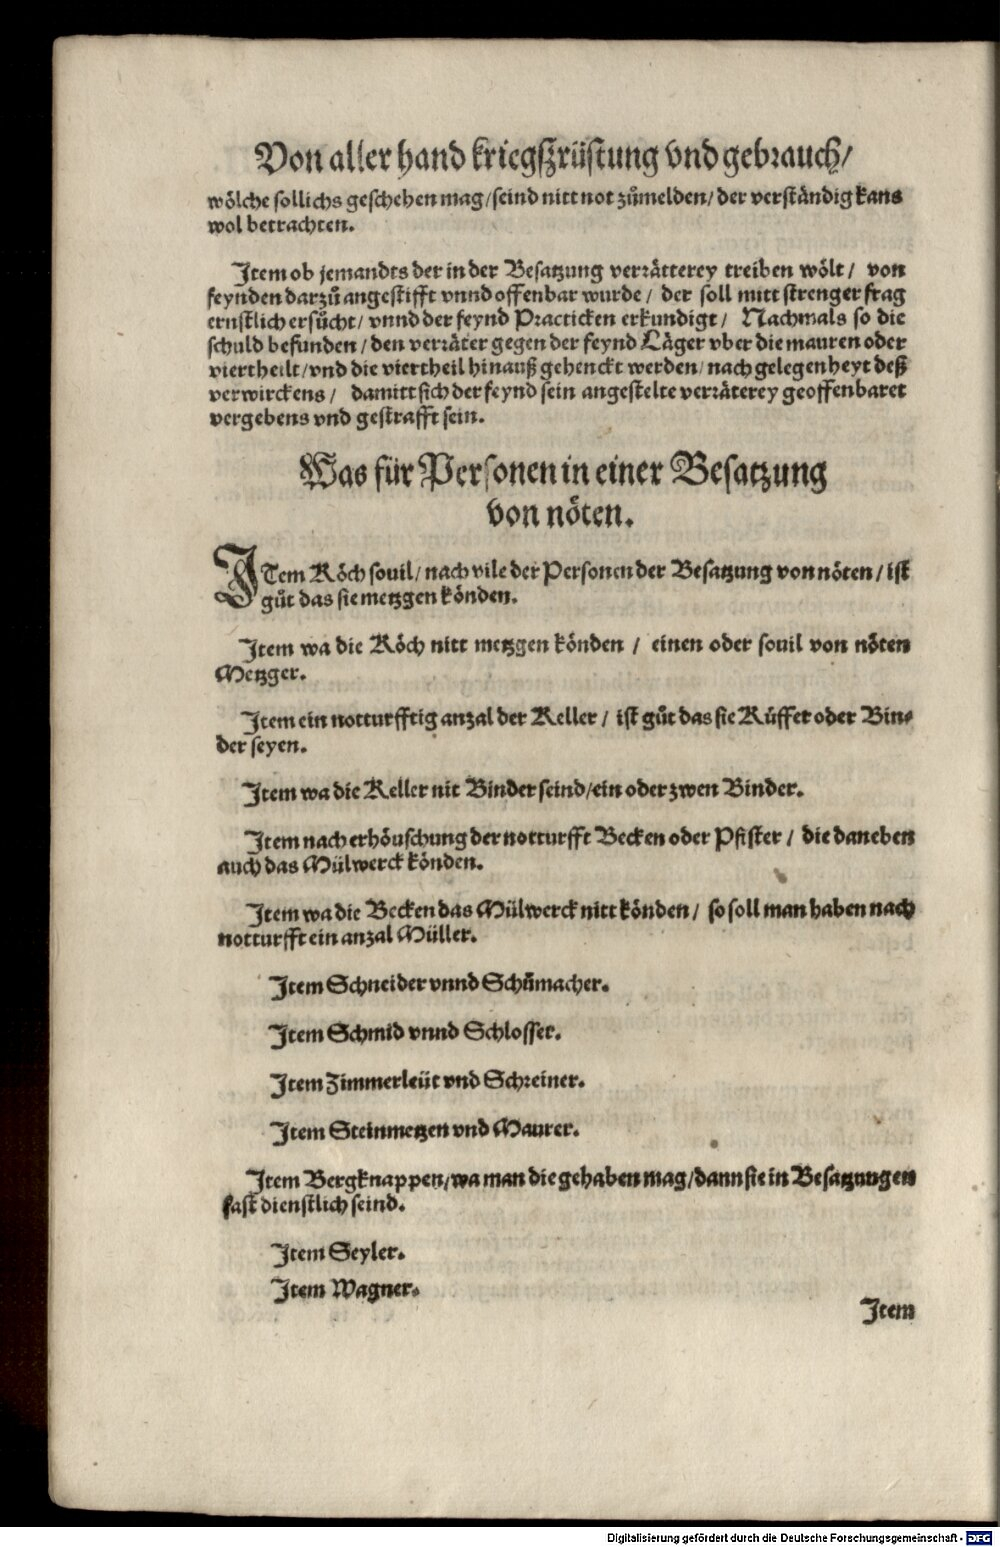 Von aller hand kriegßrüstung vnd gebrauch/
wölche sollichs geschehen mag/seind nitt not zůmelden/ der verständig kans
wol betrachten.
Item ob jemandts der in der Besatzung verrätterey treiben wölt/ von
feynden darzů angestifft vnnd offenbar wurde/ der soll mitt strenger frag
ernstlich ersůcht/ vnnd der feynd Practicken erkundigt/ Nachmals so die
schuld befunden/ den verräter gegen der feynd Läger vber die mauren oder
viertheilt/vnd die viertheil hinauß gehenckt werden/ nach gelegenheyt deß
verwirckens/ damitt sich der feynd sein angestelte verräterey geoffenbaret
vergebens vnd gestrafft sein.
Was für Personen in einer Besatzung
von nöten.
ITem Köch souil/ nach vile der Personen der Besatzung von nöten/ ist
gůt das sie metzgen könden.
Item wa die Köch nitt metzgen könden / einen oder souil von nöten
Metzger.
Item ein notturfftig anzal der Keller / ist gůt das sie Küffer oder Bin⸗
der seyen.
Item wa die Keller nit Binder seind/ein oder zwen Binder.
Item nach erhöuschung der notturfft Becken oder Pfister / die daneben
auch das Mülwerck könden.
Item wa die Becken das Mülwerck nitt könden/ so soll man haben nach
notturfft ein anzal Müller.
Item Schneider vnnd Schůmacher.
Item Schmid vnnd Schlosser.
Item Zimmerleüt vnd Schreiner.
Item Steinmetzen vnd Maurer.
Item Bergknappen/wa man die gehaben mag/dann sie in Besatzungen
fast dienstlich seind.
Item Seyler.
Item Wagner.
Item
Digitalisierung gefördert durch die Deutsche Forschungsgemeinschaft - DFG